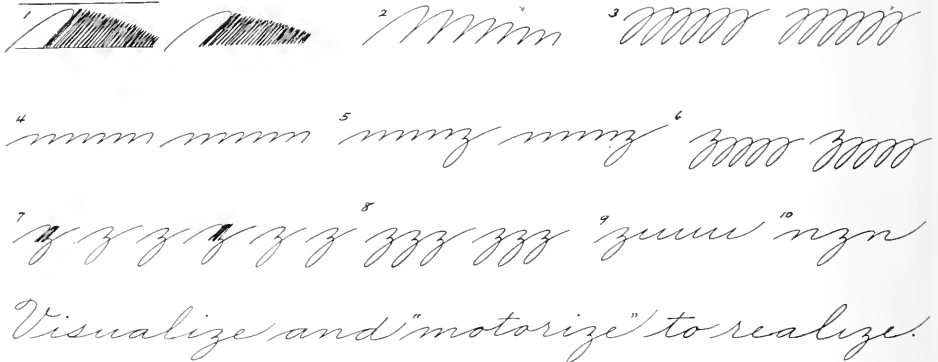 1 2 3
4 5 6
7 z z z z z z 8 zzz zzz 9 zuuu 10 nzn
Visualize and "motorize" to realize.